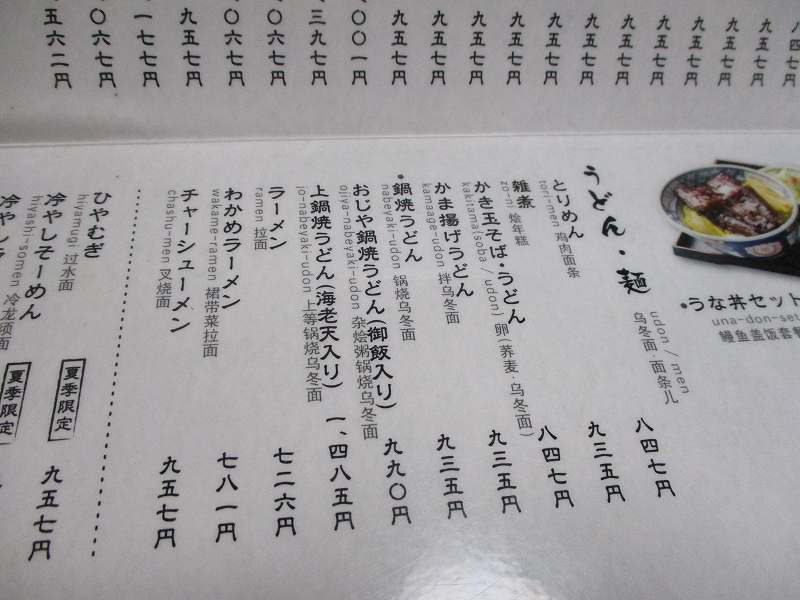 八四七円
九五七円
九五七円
九五七円
九五七円
九五七円
九五七円
九五七円
九五七円
九五七円
九五七円
九五七円
〇〇一円
三九七円
〇六七円
〇六七円
九五七円
一七七円
〇六七円
五六二円
•うな丼セット
una-don-set
鳗鱼盖饭套餐
うどん・麺
udon / men
乌冬面・面条儿
とりめん 八四七円
tori-men 鸡肉面条
雑煮 九三五円
zo-ni 烩年糕
かき玉そば・うどん 八四七円
kakitama(soba / udon) 卵(荞麦・乌冬面)
かま揚げうどん 九三五円
kamaage-udon 拌乌冬面
•鍋焼うどん 九三五円
nabeyaki-udon 锅烧乌冬面
おじや鍋焼うどん(御飯入り) 九九〇円
ojiya-nabeyaki-udon 杂烩粥锅烧乌冬面
上鍋焼うどん(海老天入り) 一、四八五円
jo-nabeyaki-udon 上等锅烧乌冬面
ラーメン 七二六円
ramen 拉面
わかめラーメン 七八一円
wakame-ramen 裙带菜拉面
チャーシューメン 九五七円
chashu-men 叉烧面
ひやむぎ 夏季限定 九五七円
hiyamugi 过水面
冷やしそーめん 夏季限定
hiyashi-somen 冷龙须面
冷やし